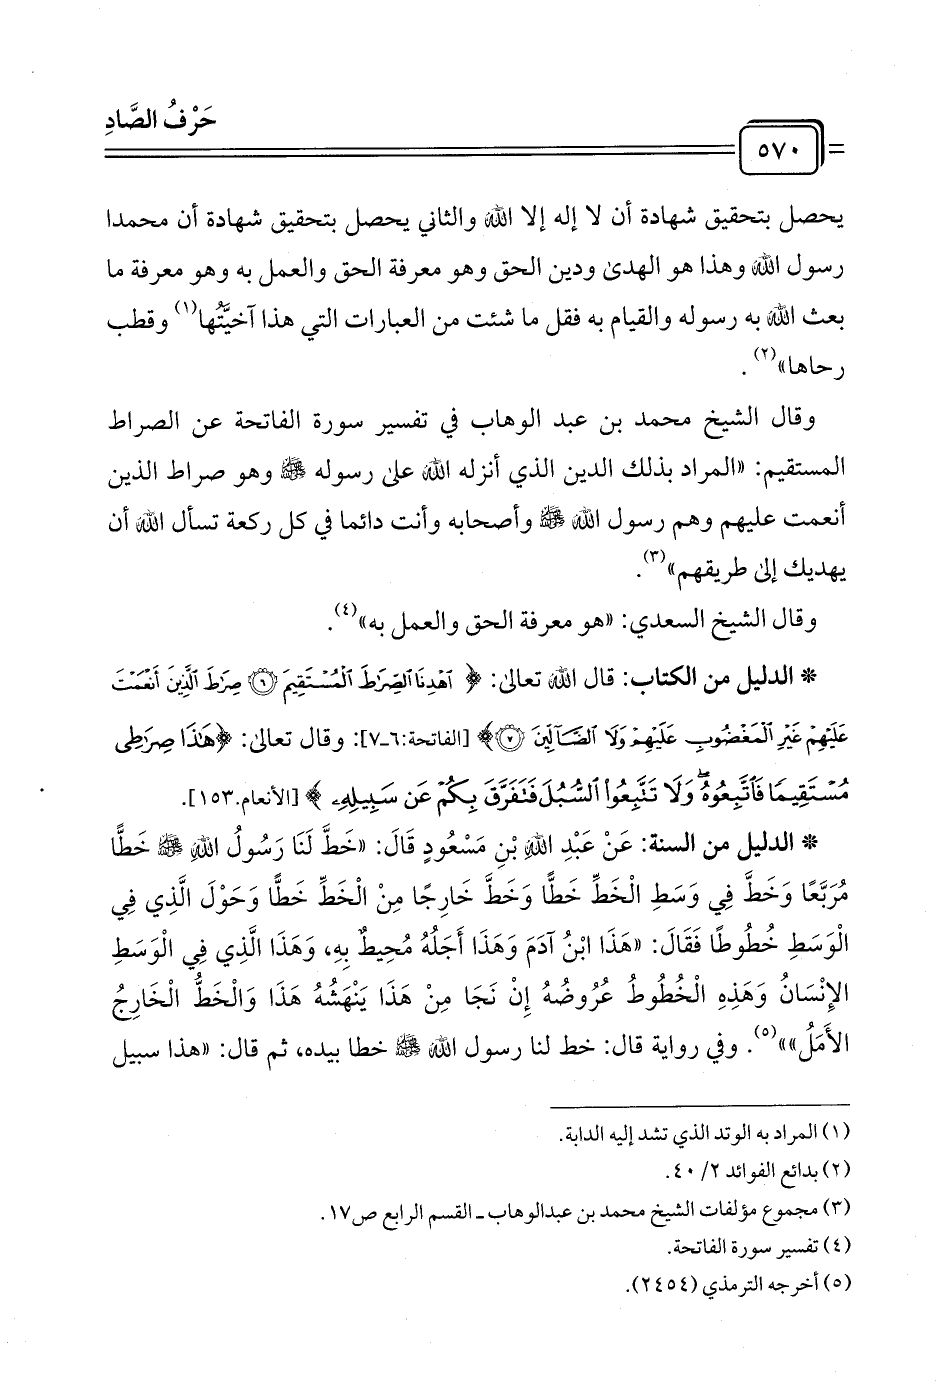 حَرْفُ الصَّادِ
٥٧٠
يحصل بتحقيق شهادة أن لا إله إلا الله والثاني يحصل بتحقيق شهادة أن محمدا
رسول الله وهذا هو الهدىٰ ودين الحق وهو معرفة الحق والعمل به وهو معرفة ما
بعث الله به رسوله والقيام به فقل ما شئت من العبارات التي هذا آخيَّتُها(١) وقطب
رحاها»(٢).
وقال الشيخ محمد بن عبد الوهاب في تفسير سورة الفاتحة عن الصراط
المستقيم: «المراد بذلك الدين الذي أنزله الله علىٰ رسوله ﷺ وهو صراط الذين
أنعمت عليهم وهم رسول الله ﷺ وأصحابه وأنت دائما في كل ركعة تسأل الله أن
يهديك إلىٰ طريقهم»(٣).
وقال الشيخ السعدي: «هو معرفة الحق والعمل به»(٤).
* الدليل من الكتاب: قال الله تعالىٰ: ﴿ ٱهْدِنَا ٱلصِّرَٰطَ ٱلْمُسْتَقِيمَ ۝٦ صِرَٰطَ ٱلَّذِينَ أَنْعَمْتَ
عَلَيْهِمْ غَيْرِ ٱلْمَغْضُوبِ عَلَيْهِمْ وَلَا ٱلضَّآلِّينَ ۝٧﴾ [الفاتحة:٦-٧]: وقال تعالىٰ: ﴿هَٰذَا صِرَٰطِى
مُسْتَقِيمًا فَٱتَّبِعُوهُ ۖ وَلَا تَتَّبِعُوا۟ ٱلسُّبُلَ فَتَفَرَّقَ بِكُمْ عَن سَبِيلِهِۦ ﴾ [الأنعام.١٥٣].
* الدليل من السنة: عَنْ عَبْدِ اللهِ بْنِ مَسْعُودٍ قَالَ: «خَطَّ لَنَا رَسُولُ اللهِ ﷺ خَطًّا
مُرَبَّعًا وَخَطَّ فِي وَسَطِ الْخَطِّ خَطًّا وَخَطَّ خَارِجًا مِنْ الْخَطِّ خَطًّا وَحَوْلَ الَّذِي فِي
الْوَسَطِ خُطُوطًا فَقَالَ: «هَذَا ابْنُ آدَمَ وَهَذَا أَجَلُهُ مُحِيطٌ بِهِ، وَهَذَا الَّذِي فِي الْوَسَطِ
الإِنْسَانُ وَهَذِهِ الْخُطُوطُ عُرُوضُهُ إِنْ نَجَا مِنْ هَذَا يَنْهَشُهُ هَذَا وَالْخَطُّ الْخَارِجُ
الأَمَلُ»»(٥). وفي رواية قال: خط لنا رسول الله ﷺ خطا بيده، ثم قال: «هذا سبيل
(١) المراد به الوتد الذي تشد إليه الدابة.
(٢) بدائع الفوائد ٢/ ٤٠.
(٣) مجموع مؤلفات الشيخ محمد بن عبدالوهاب ـ القسم الرابع ص١٧.
(٤) تفسير سورة الفاتحة.
(٥) أخرجه الترمذي (٢٤٥٤).